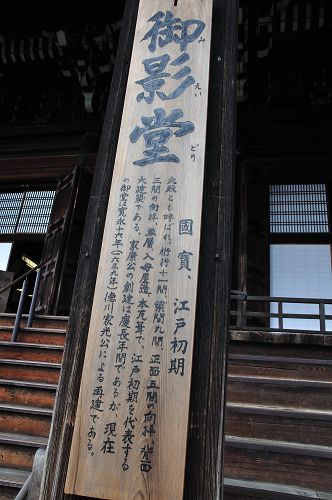 御影堂
みえいどう
國寳、江戸初期
大殿とも呼ばれ、桁行十一間、梁間九間、正面五間の向拝、背面
三間の向拝、単層、入母屋造、本瓦葺で、江戸初期を代表する
大建築である。家康公の創建は慶長年間であるが、現在
の御堂は寛永十六年（一六三九年）徳川家光公による再建である。